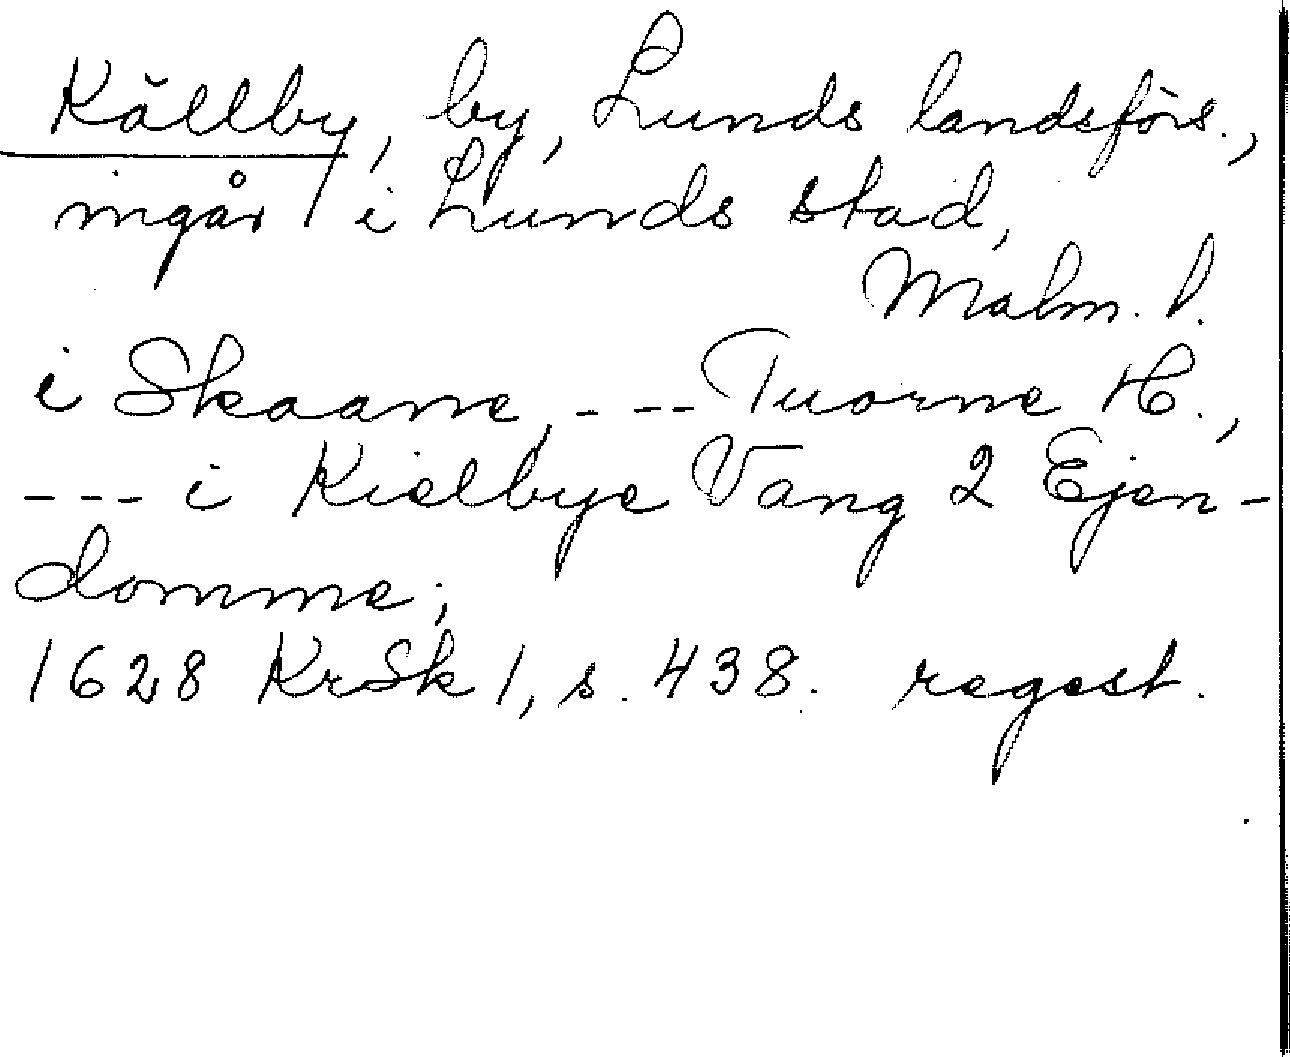 Källby, by, Lunds landsförs.,
ingår i Lunds stad,
Malm. l.
i Skaane, --- Tuorne H.,
--- i Kielbye Vang 2 Ejen-
domme;
1628 KrSk 1, s. 438. regest.